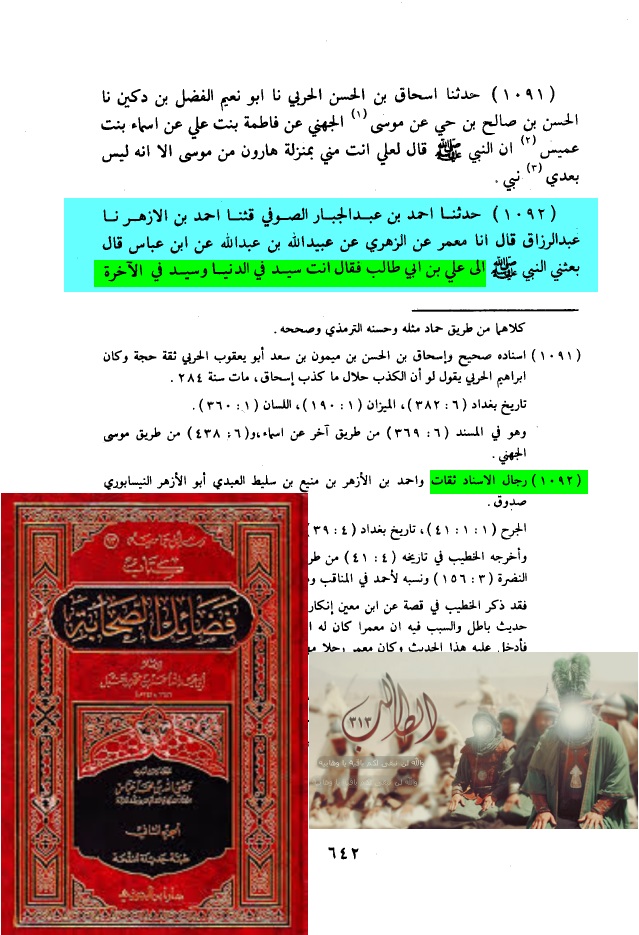 (١٠٩١) حدثنا اسحاق بن الحسن الحربي نا ابو نعيم الفضل بن دكين نا
الحسن بن صالح بن حي عن موسى (١) الجهني عن فاطمة بنت علي عن اسماء بنت
عميس (٢) ان النبي ﷺ قال لعلي انت مني بمنزلة هارون من موسى الا انه ليس
بعدي (٣) نبي .
(١٠٩٢) حدثنا احمد بن عبدالجبار الصوفي قثنا احمد بن الازهر نا
عبدالرزاق قال انا معمر عن الزهري عن عبيدالله بن عبدالله عن ابن عباس قال
بعثني النبي ﷺ الى علي بن ابي طالب فقال انت سيد في الدنيا وسيد في الآخرة
كلاهما من طريق حماد مثله وحسنه الترمذي وصححه .
(١٠٩١) اسناده صحيح وإسحاق بن الحسن بن ميمون بن سعد أبو يعقوب الحربي ثقة حجة وكان
ابراهيم الحربي يقول لو أن الكذب حلال ما كذب إسحاق، مات سنة ٢٨٤ .
تاريخ بغداد (٦ : ٣٨٢)، الميزان (١ : ١٩٠)، اللسان (١ : ٣٦٠) .
وهو في المسند (٦ : ٣٦٩) من طريق آخر عن اسماء،و(٦ : ٤٣٨) من طريق موسى
الجهني .
(١٠٩٢) رجال الاسناد ثقات واحمد بن الأزهر بن منيع بن سليط العبدي أبو الأزهر النيسابوري
صدوق .
الجرح (١ : ١ : ٤١)، تاريخ بغداد (٤ : ٣٩
وأخرجه الخطيب في تاريخه (٤ : ٤١) من
النضرة (٣ : ١٥٦) ونسبه لأحمد في المناقب
فقد ذكر الخطيب في قصة عن ابن معين
حديث باطل والسبب فيه ان معمرا كان له
فأدخل عليه هذا الحديث وكان معمر رجلا
كتاب
فضائل الصحابة
الجزء الثاني
الطالب
٣١٣
٦٤٢